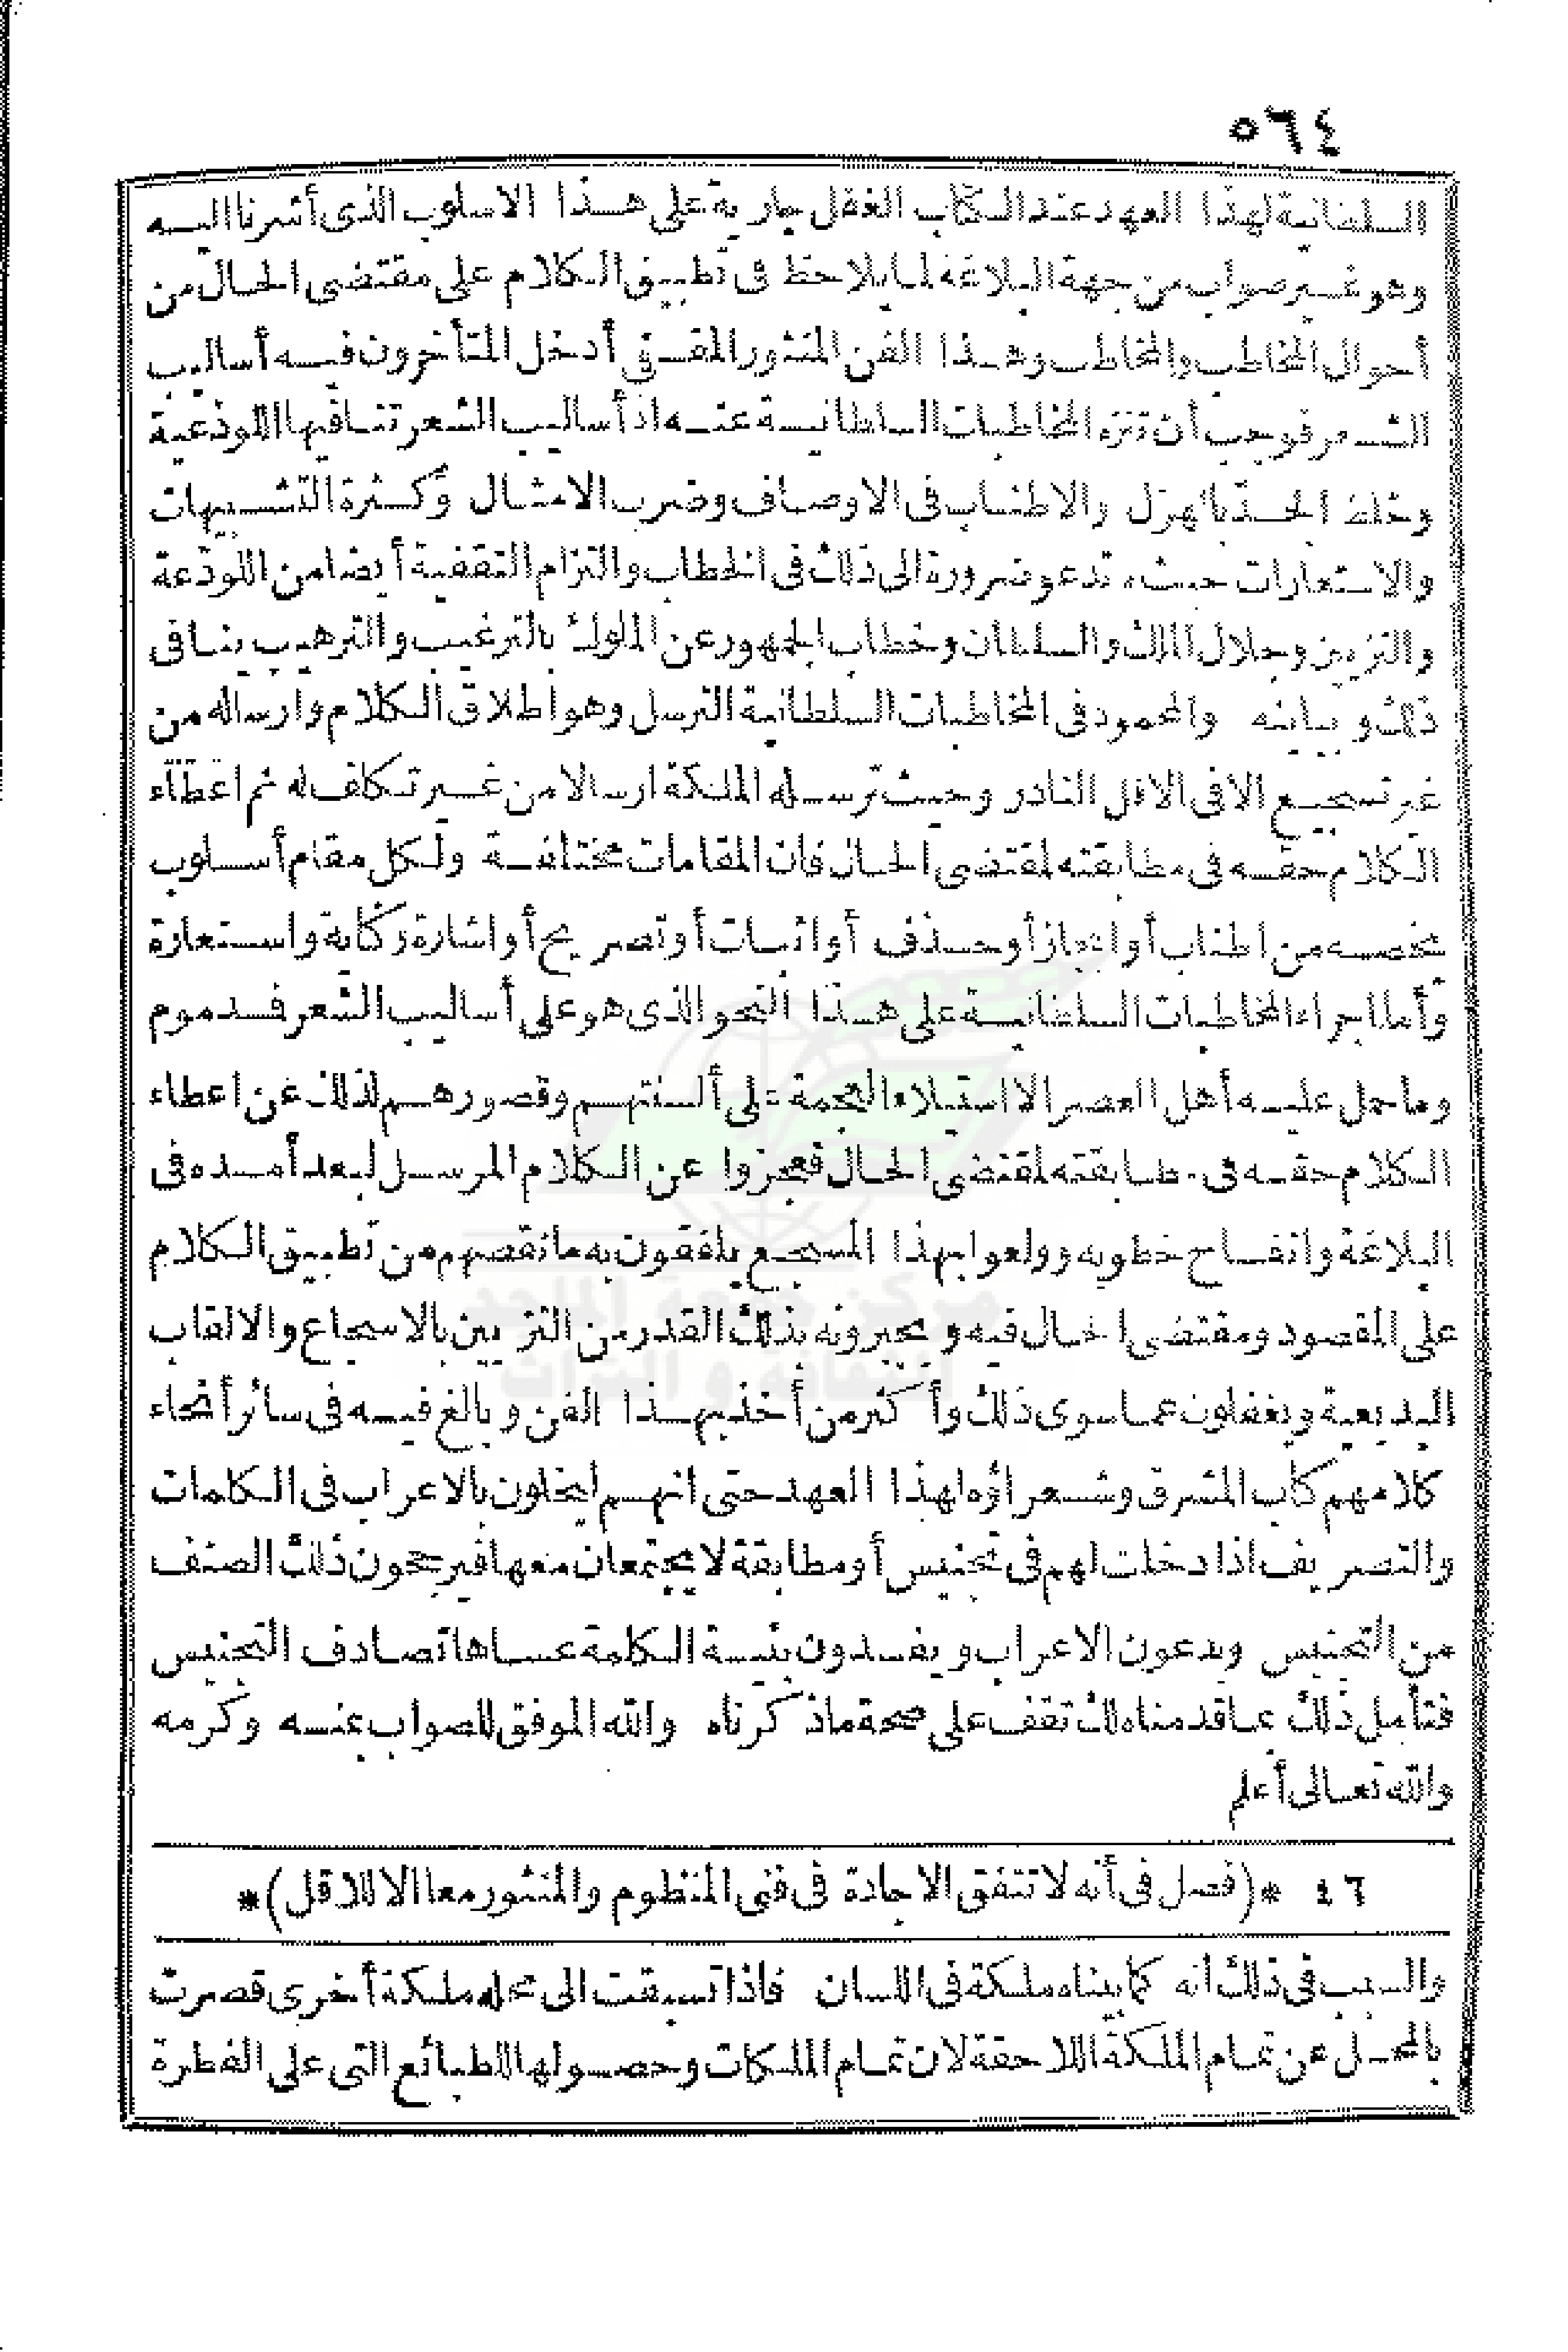 ٥٦٤
السلطانية لهذا العهد عند الكتاب الغفل جارية على هذا الاسلوب الذى أشرنا اليه
وهو غير صواب من جهة البلاغة لما يلاحظ فى تطبيق الكلام على مقتضى الحال من
أحوال المخاطب والمخاطب وهذا الفن المنثور المقفى أدخل المتأخرون فيه أساليب
الشعر فوجب أن تنزه المخاطبات السلطانية عنه اذ أساليب الشعر تنافيها اللوذعية
وخلط الجد بالهزل والاطناب فى الاوصاف وضرب الامثال وكثرة التشبيهات
والاستعارات حيث تدعو ضرورة الى ذلك فى الخطاب والتزام التقفية أيضا من اللوذعة
والتزيين وجلال الملك والسلطان وخطاب الجمهور عن الملوك بالترغيب والترهيب ينافى
ذلك ويباينه والمحمود فى المخاطبات السلطانية الترسل وهو اطلاق الكلام وارساله من
غير تسجيع الا فى الاقل النادر وحيث ترسله الملكة ارسالا من غير تكلف له ثم اعطاء
الكلام حقه فى مطابقته لمقتضى الحال فان المقامات مختلفة ولكل مقام أسلوب
يخصه من اطناب أو ايجاز أو حذف أو اثبات أو تصريح أو اشارة وكناية واستعارة
وأما اجراء المخاطبات السلطانية على هذا النحو الذى هو على أساليب الشعر فمذموم
وما حمل عليه أهل العصر الا استيلاء العجمة على ألسنتهم وقصورهم لذلك عن اعطاء
الكلام حقه فى مطابقته لمقتضى الحال فعجزوا عن الكلام المرسل لبعد أمده فى
البلاغة وانفساح خطوبه وولعوا بهذا المسجع يلفقون به ما نقصهم من تطبيق الكلام
على المقصود ومقتضى الحال فيه ويجبرونه بذلك القدر من التزيين بالاسجاع والالقاب
البديعية ويغفلون عما سوى ذلك وأكثر من أخذ بهذا الفن وبالغ فيه فى سائر أنحاء
كلامهم كتاب المشرق وشعراؤه لهذا العهد حتى انهم ليخلون بالاعراب فى الكلمات
والتصريف اذا دخلت لهم فى تجنيس أو مطابقة لا يجتمعان معها فيرجحون ذلك الصنف
من التجنيس ويدعون الاعراب ويفسدون بنية الكلمة عساها تصادف التجنيس
فتأمل ذلك بما قدمناه لك تقف على صحة ما ذكرناه والله الموفق للصواب بمنه وكرمه
والله تعالى أعلم
٤٦ * (فصل فى أنه لا تتفق الاجادة فى فنى المنظوم والمنثور معا الا للاقل) *
والسبب فى ذلك أنه كما بيناه ملكة فى اللسان فاذا تسبقت الى محله ملكة أخرى قصرت
بالمحل عن تمام الملكة اللاحقة لان تمام الملكات وحصولها للطبائع التى على الفطرة
مركز جمعة الماجد
للثقافة و التراث